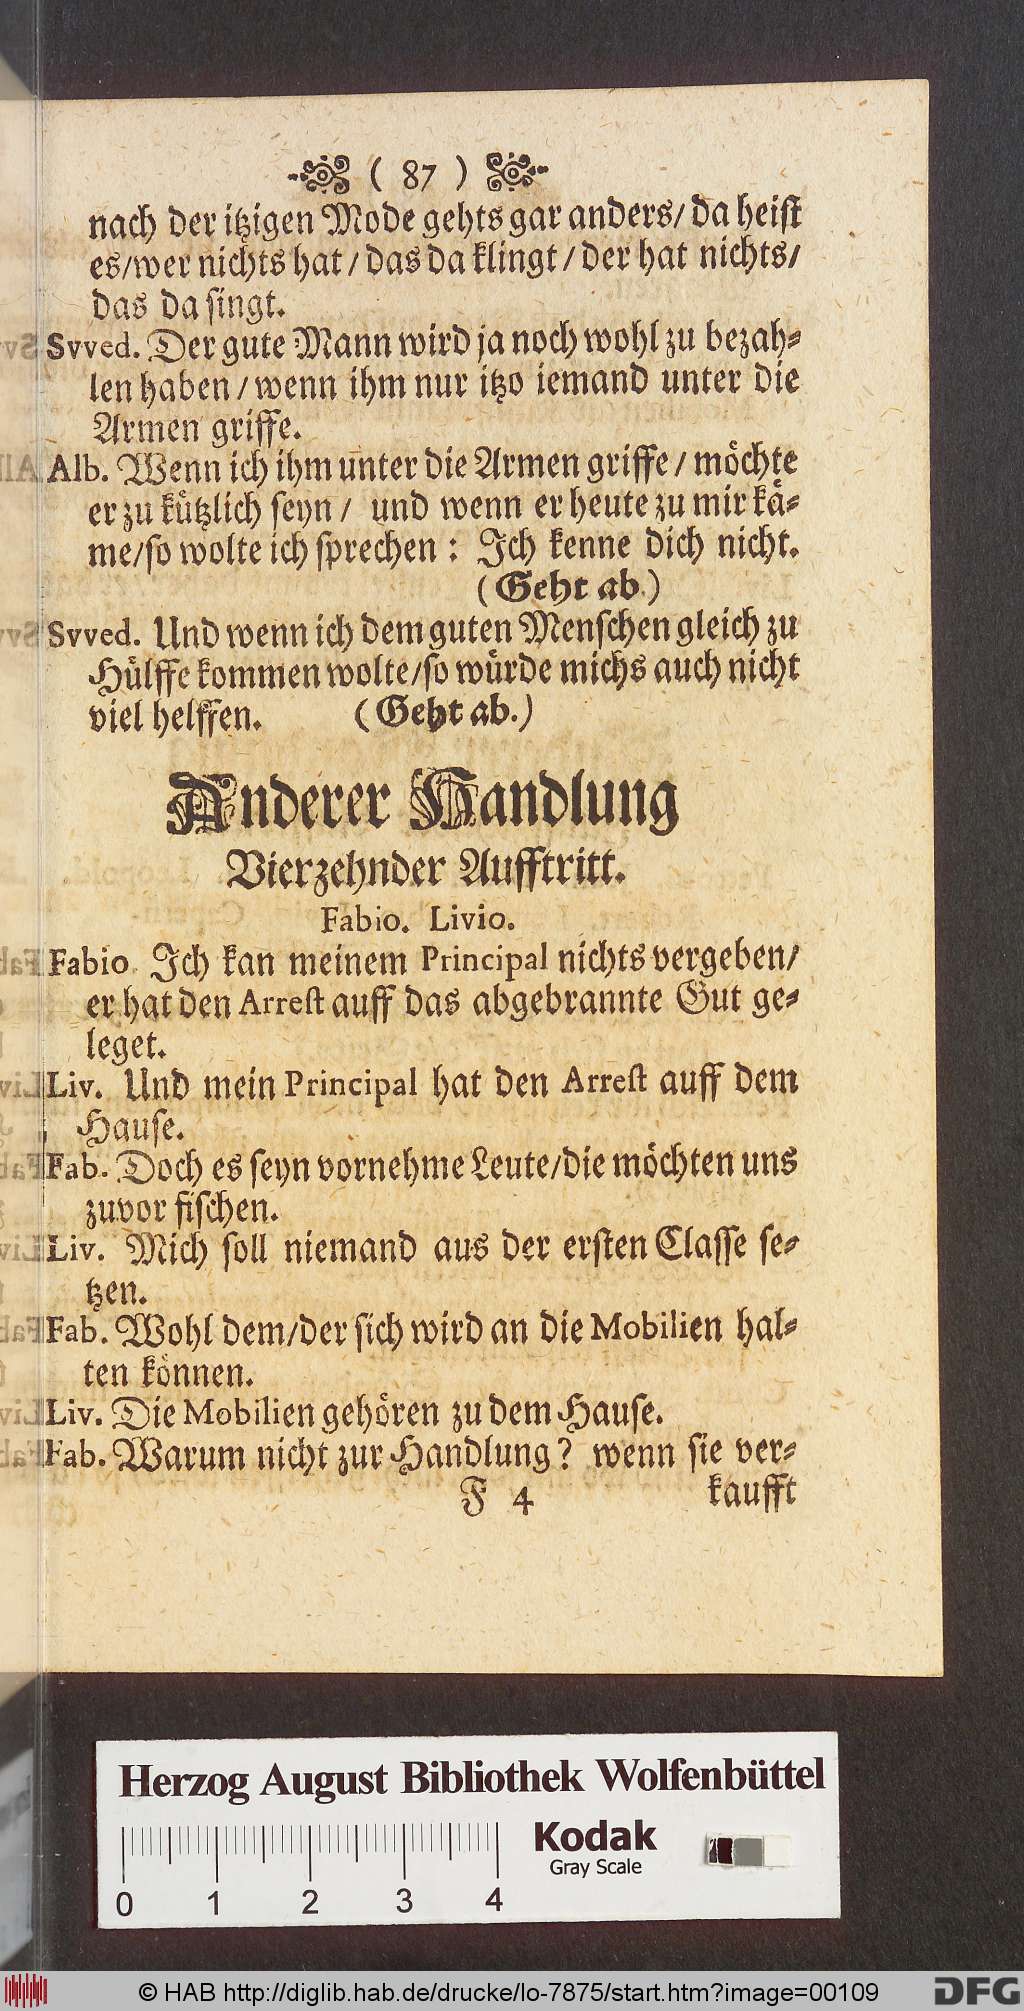 ( 87 )
nach der itzigen Mode gehts gar anders/ da heist
es/wer nichts hat / das da klingt / der hat nichts/
das da singt.
Svved. Der gute Mann wird ja noch wohl zu bezah-
len haben / wenn ihm nur itzo iemand unter die
Armen griffe.
Alb. Wenn ich ihm unter die Armen griffe / möchte
er zu kützlich seyn / und wenn er heute zu mir kä-
me/so wolte ich sprechen : Ich kenne dich nicht.
(Geht ab.)
Svved. Und wenn ich dem guten Menschen gleich zu
Hülffe kommen wolte/so würde michs auch nicht
viel helffen. (Geht ab.)
Anderer Handlung
Vierzehnder Aufftritt.
Fabio. Livio.
Fabio. Ich kan meinem Principal nichts vergeben/
er hat den Arrest auff das abgebrannte Gut ge-
leget.
Liv. Und mein Principal hat den Arrest auff dem
Hause.
Fab. Doch es seyn vornehme Leute/die möchten uns
zuvor fischen.
Liv. Mich soll niemand aus der ersten Classe se-
tzen.
Fab. Wohl dem/der sich wird an die Mobilien hal-
ten können.
Liv. Die Mobilien gehören zu dem Hause.
Fab. Warum nicht zur Handlung? wenn sie ver-
F 4 kaufft
Herzog August Bibliothek Wolfenbüttel
Kodak
Gray Scale
0 1 2 3 4
© HAB http://diglib.hab.de/drucke/lo-7875/start.htm?image=00109
DFG